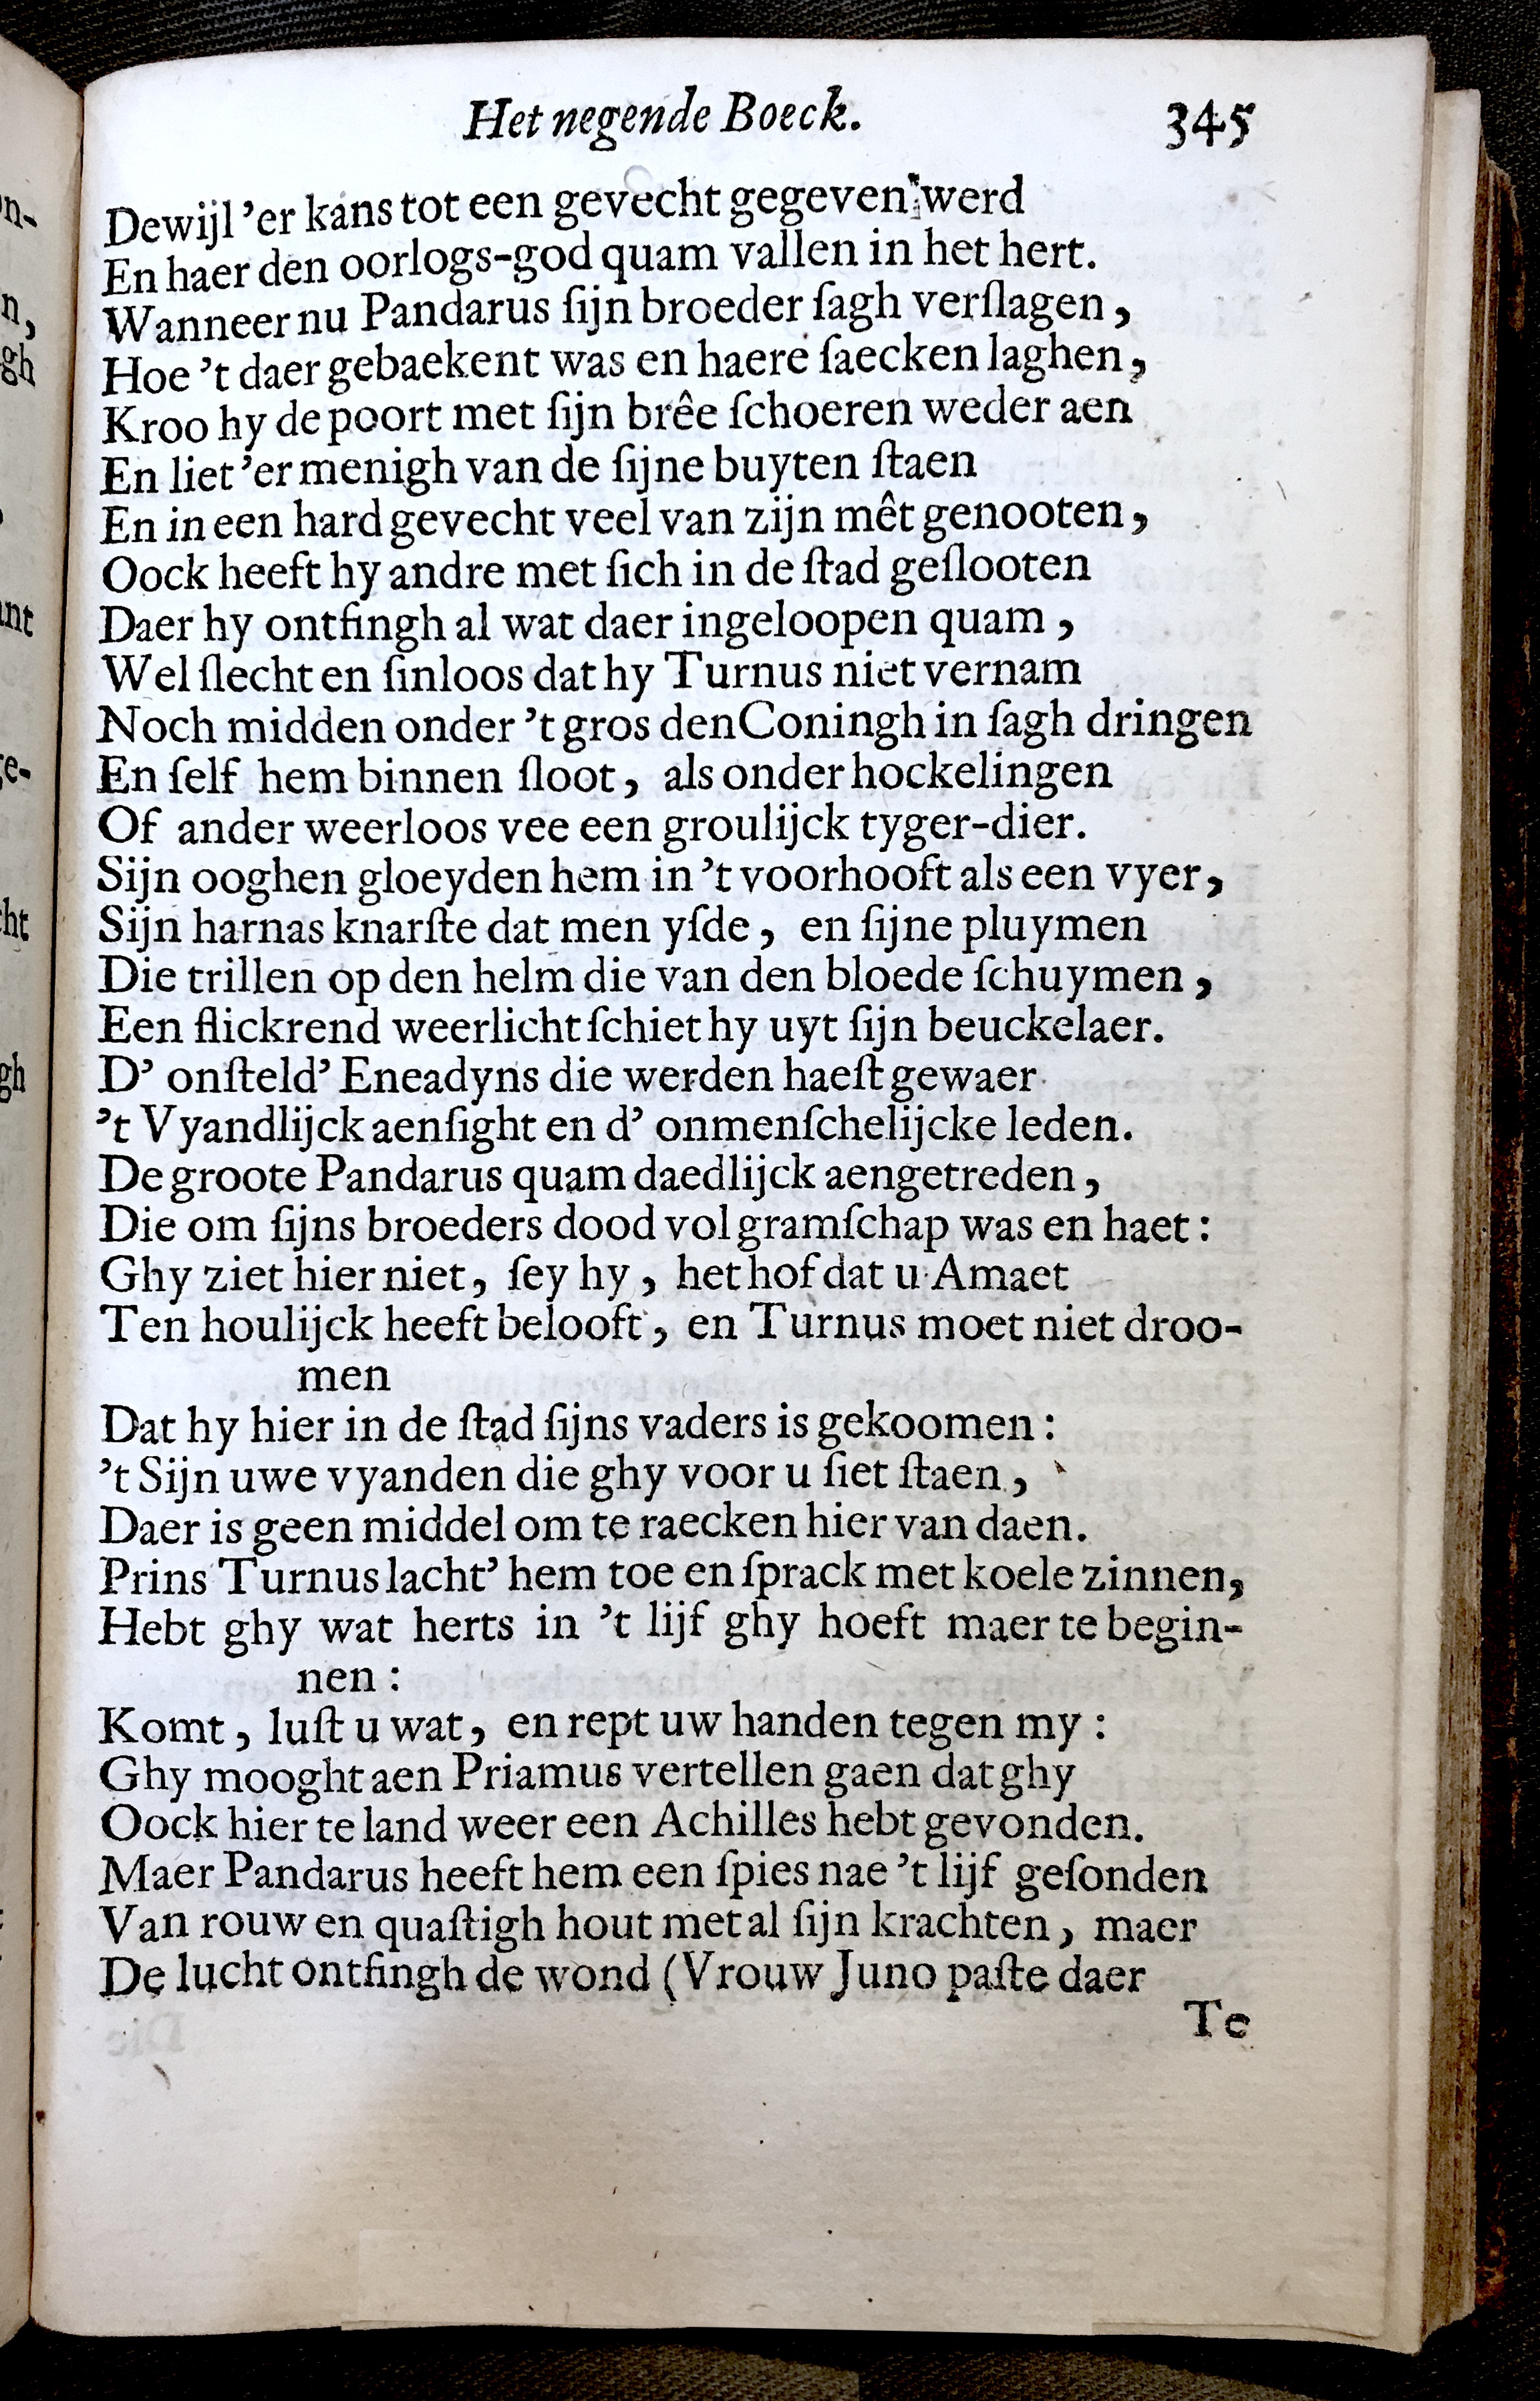 Het negende Boeck. 345
Dewijl ’er kans tot een gevecht gegeven werd
En haer den oorlogs-god quam vallen in het hert.
Wanneer nu Pandarus ſijn broeder ſagh verſlagen,
Hoe ’t daer gebaekent was en haere ſaecken laghen,
Kroo hy de poort met ſijn brêe ſchoeren weder aen
En liet ’er menigh van de ſijne buyten ſtaen
En in een hard gevecht veel van zijn mêt genooten,
Oock heeft hy andre met ſich in de ſtad geſlooten
Daer hy ontfingh al wat daer ingeloopen quam,
Wel ſlecht en ſinloos dat hy Turnus niet vernam
Noch midden onder ’t gros den Coningh in ſagh dringen
En ſelf hem binnen ſloot, als onder hockelingen
Of ander weerloos vee een groulijck tyger-dier.
Sijn ooghen gloeyden hem in ’t voorhooft als een vyer,
Sijn harnas knarſte dat men yſde, en ſijne pluymen
Die trillen op den helm die van den bloede ſchuymen,
Een flickrend weerlicht ſchiet hy uyt ſijn beuckelaer.
D’ onſteld’ Eneadyns die werden haeſt gewaer
’t Vyandlijck aenſight en d’ onmenſchelijcke leden.
De groote Pandarus quam daedlijck aengetreden,
Die om ſijns broeders dood vol gramſchap was en haet:
Ghy ziet hier niet, ſey hy, het hof dat u Amaet
Ten houlijck heeft belooft, en Turnus moet niet droo-
men
Dat hy hier in de ſtad ſijns vaders is gekoomen:
’t Sijn uwe vyanden die ghy voor u ſiet ſtaen,
Daer is geen middel om te raecken hier van daen.
Prins Turnus lacht’ hem toe en ſprack met koele zinnen,
Hebt ghy wat herts in ’t lijf ghy hoeft maer te begin-
nen:
Komt, luſt u wat, en rept uw handen tegen my:
Ghy mooght aen Priamus vertellen gaen dat ghy
Oock hier te land weer een Achilles hebt gevonden.
Maer Pandarus heeft hem een ſpies nae ’t lijf geſonden
Van rouw en quaſtigh hout met al ſijn krachten, maer
De lucht ontfingh de wond (Vrouw Juno paſte daer
Te